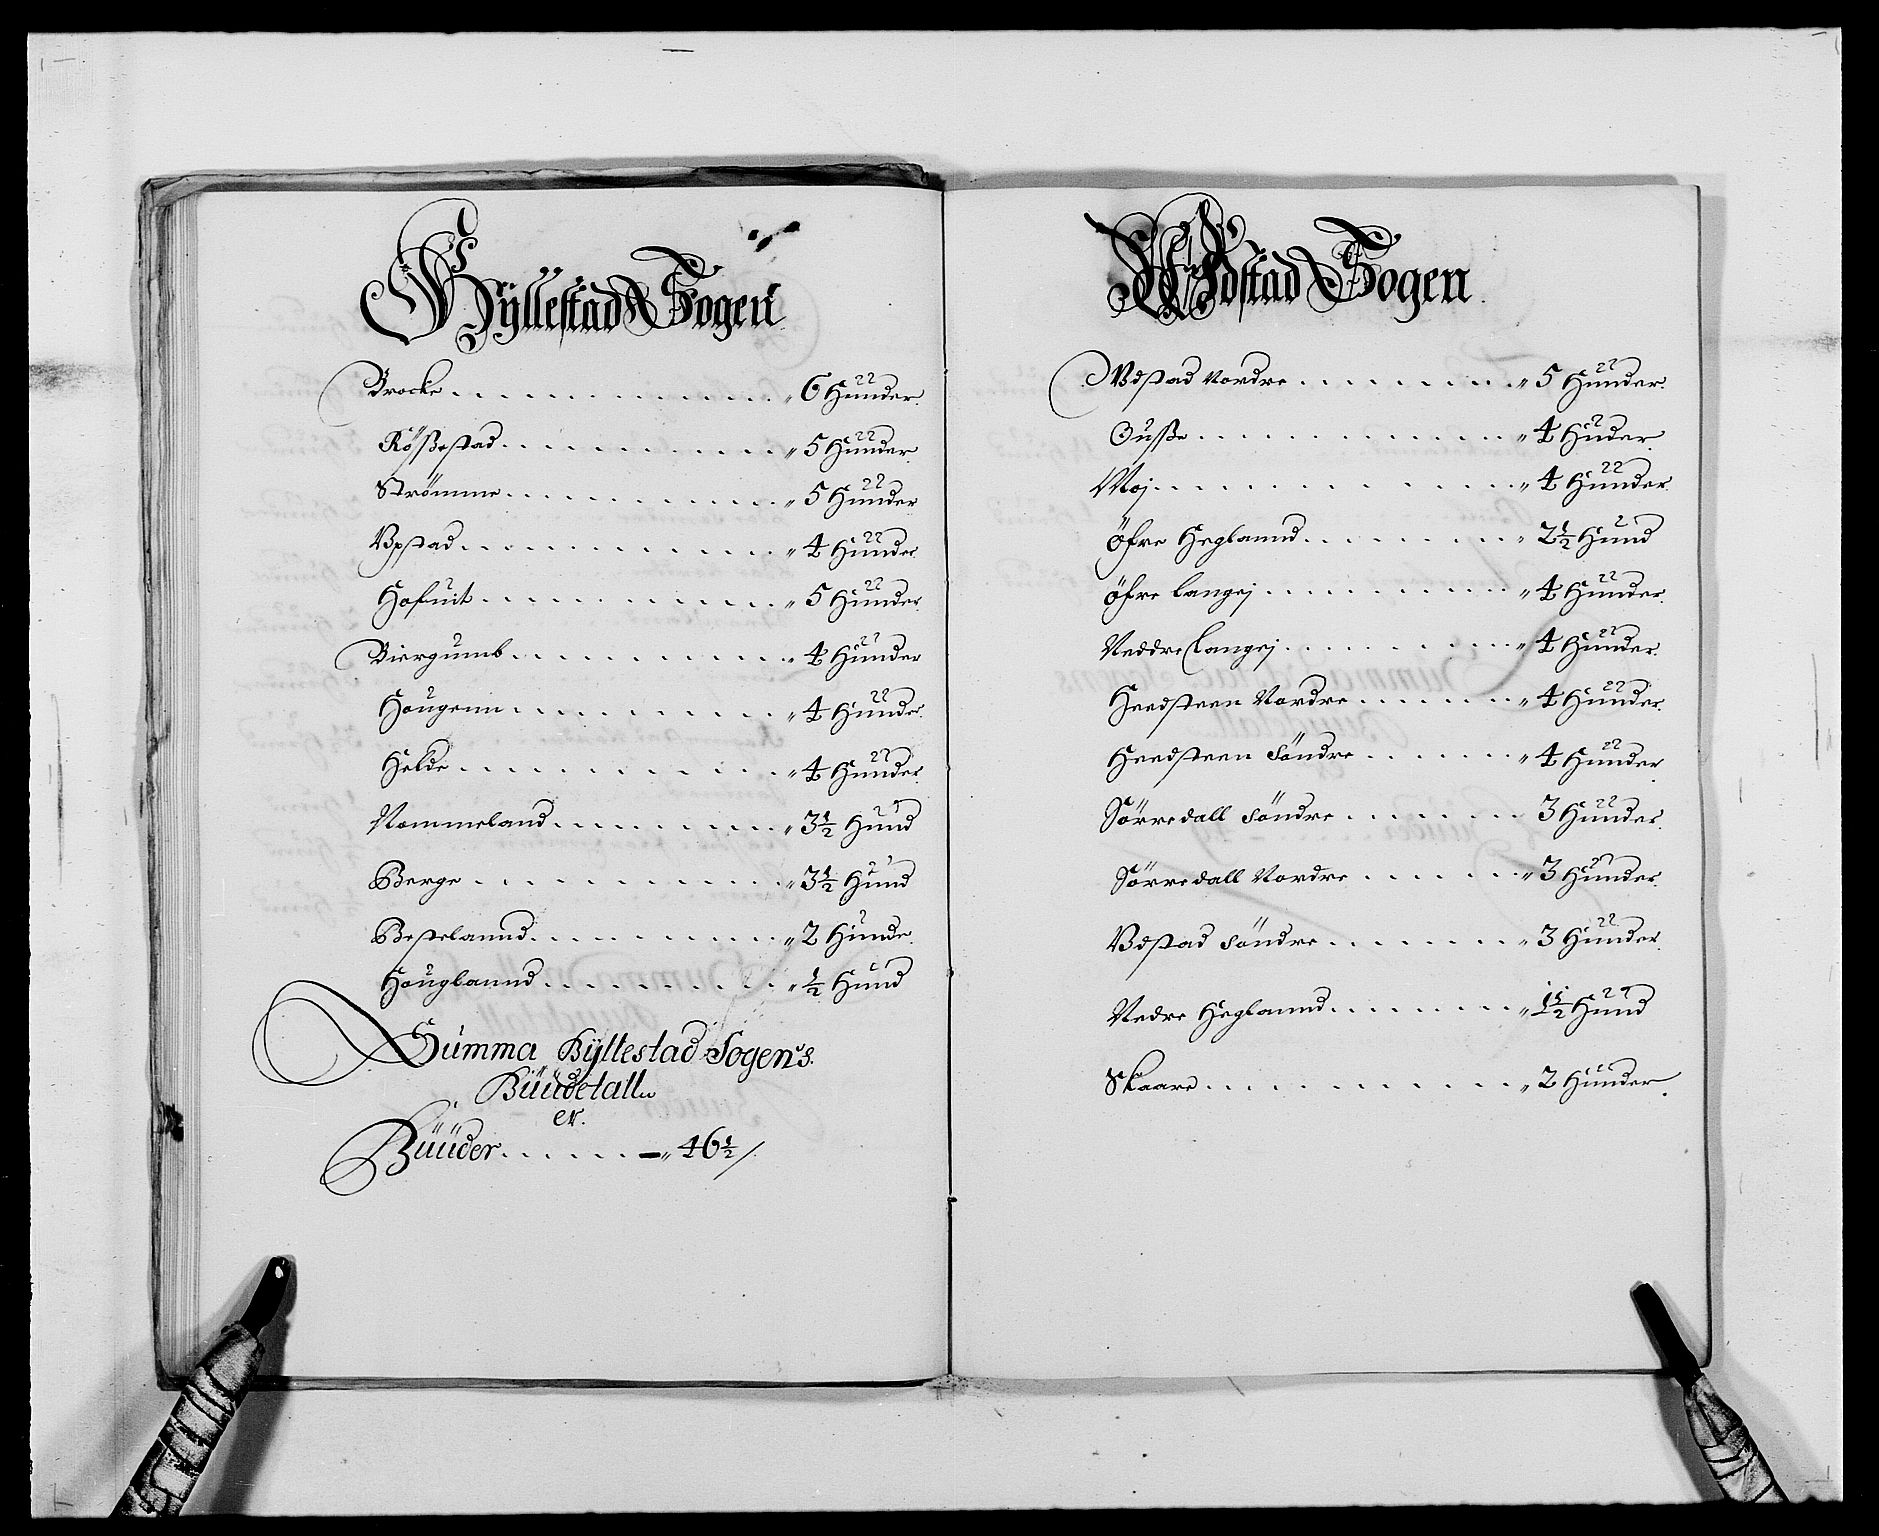 Byllestad Sogen
Brocke . . . . . . . . . . . . „ 6 Hunder
Rößestad . . . . . . . . . . . „ 5 Hunder
Strömme . . . . . . . . . . . „ 5 Hunder
Vpstad . . . . . . . . . . . . „ 4 Hunder
Hofuit . . . . . . . . . . . . „ 5 Hunder
Biergumb . . . . . . . . . . . „ 4 Hunder
Hougenn . . . . . . . . . . . „ 4 Hunder
Helde . . . . . . . . . . . . „ 4 Hunder
Nommeland . . . . . . . . . . „ 3½ Hund
Berge . . . . . . . . . . . . „ 3½ Hund
Bestelannd . . . . . . . . . . „ 2 Hunde
Houglannd . . . . . . . . . . „ ½ Hund
Summa Byllestad Sogens
Huudetall
er.
Huuder . . . . . . — „ 46½ /.
Wdstad Sogen
Vdstad Nordre . . . . . . . . „ 5 Hunder
Ousße . . . . . . . . . . . . „ 4 Huder
Moj . . . . . . . . . . . . . „ 4 Hunder
Öfre Heglannd . . . . . . . . „ 2½ Hund
Öfre Langej . . . . . . . . . „ 4 Hunder
Neddre Langej . . . . . . . . „ 4 Hunder
Heedsteen Nordre . . . . . . . „ 4 Hunder
Heedsteen Söndre . . . . . . . „ 4 Hunder
Sörredall Söndre . . . . . . . 3 Hunder
Sörredall Nordre . . . . . . . „ 3 Hunder
Vdstad Söndre . . . . . . . . „ 3 Hunder
Nedre Heglannd . . . . . . . . „ 1½ Hund
Skaare . . . . . . . . . . . . „ 2 Hunder